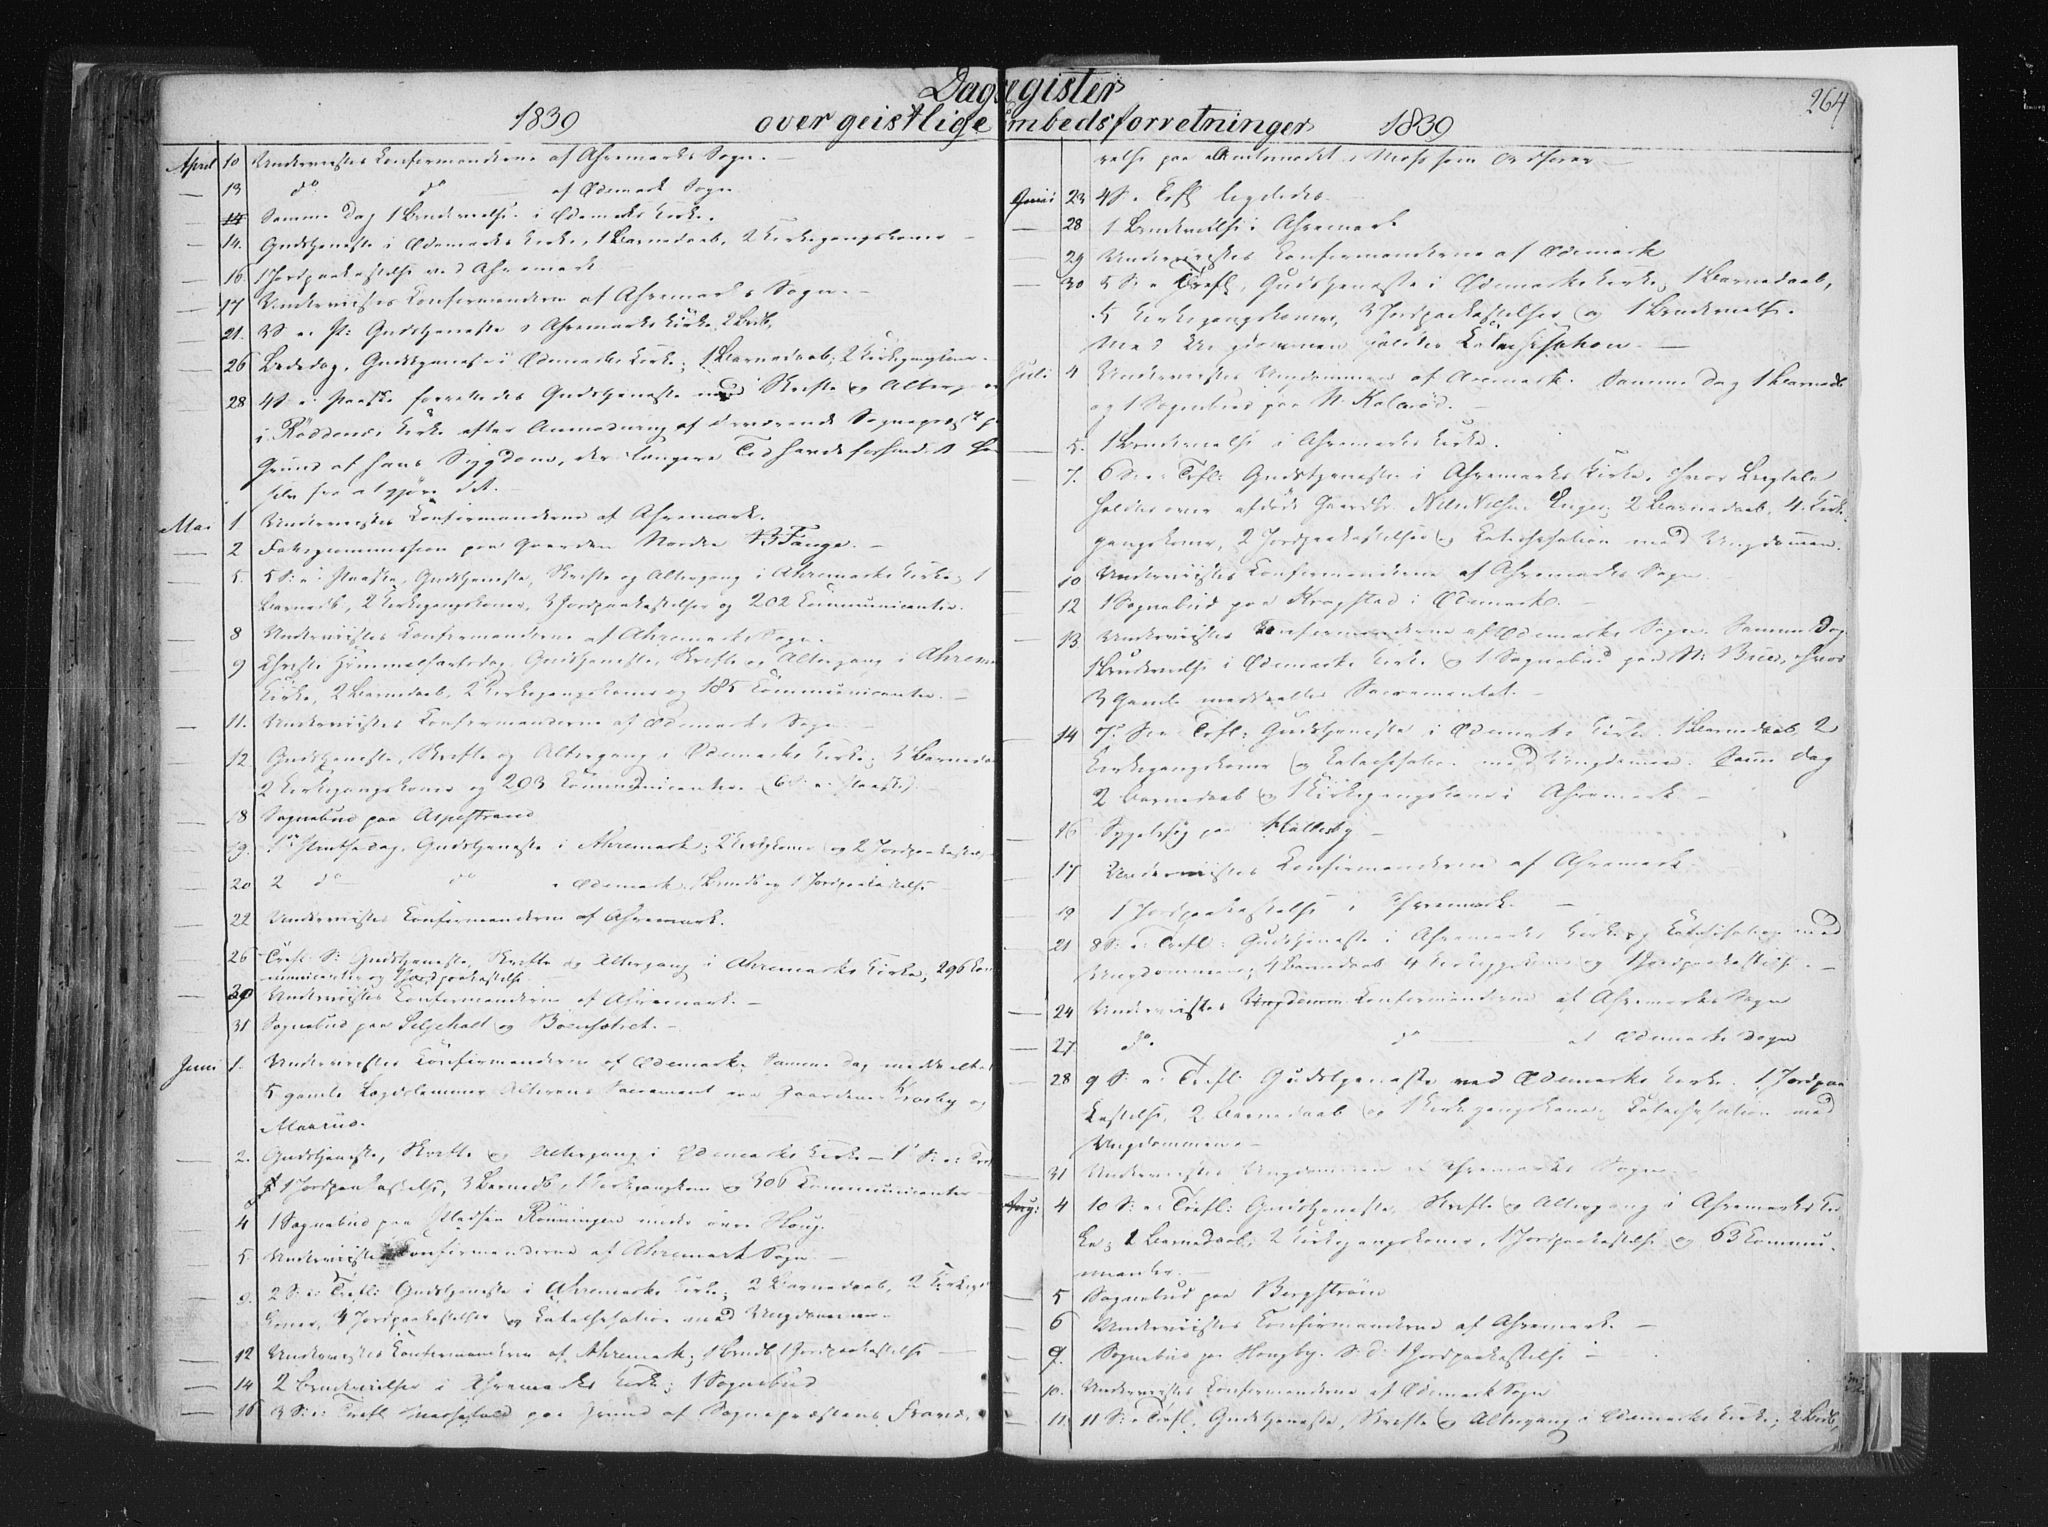 Dagregister
264
1839 over geistlige Embedsforretninger 1839
April 10 Underviistes Konfirmanderne af Ahremarks Sogn. —
— 13 do do af Ødemark Sogn
— 14 Samme Dag 1 Brudevielse i Ødemarks Kirke.
— 14. Gudstjeneste i Ødemarks Kirke, 1 Barnedaab, 2 Kirkegangskoner —
— 16. 1 Jordpaakastelse ved Ahremark
— 17 Underviistes Konfirmanderne af Ahremarks Sogn. —
21. 3 S. e. P: Gudstjeneste i Ahremarks Kirke, 2 Brdb,
— 26 Bededag, Gudstjeneste i Ødemarks Kirke; 1 Barnedaab; 2 Kirkegangskoner.
— 28 4 S. e. Paaske forrettedes Gudstjeneste med Skrifte og Altergang
i Röddenes Kirke efter Anmodning af værende Sognepræst
Grund af hans Sygdom, der længere Tid havde forhindret ham
selv fra at gjöre det. —
Mai 1 Underviistes Konfirmanderne af Ahremark.
— 2 paa Gaarden Nordre Fange. —
— 5. 5 S: e: Paaske, Gudstjeneste, Skrifte og Altergang i Ahremarks Kirke; 1
Barnedb, 2 Kirkegangskoner, 3 Jordpaakastelser og 202 Communicanter.
— 8 Underviistes Konfirmanderne af Ahremarks Sogn.
— 9 Christi Himmelfartsdag, Gudstjeneste, Skrifte og Altergang i Ahrem
Kirke, 2 Barnedaab, 2 Kirkegangskoner og 185 Communicanter. —
— 11. Underviistes Konfirmanderne af Ødemarks Sogn. —
— 12 Gudstjeneste, Skrifte og Altergang i Ødemarks Kirke; 3 Barnedaab
2 Kirkegangskoner og 203 Communicanter (6 S: e: Paaske)
— 18 Sognebud paa Aspestrand
— 19. 1ste Pintsedag, Gudstjeneste i Ahremark; 2 Kirkgkoner og 2 Jordpaakastelser
— 20 2 do do i Ødemark, 1 Brudv og 1 Jordpaakastelse
— 22 Underviistes Konfirmanderne af Ahremark.
— 26 Trefl: S: Gudstjeneste, Skrifte og Altergang i Ahremarks Kirke, 296 Com
municanter og 1 Jordpaakastelse
— 29 Underviistes Konfirmanderne af Ahremark. —
— 31 Sognebud paa Seljehalt og Boensætret. —
Juni 1. Underviistes Konfirmanderne af Ødemark. Samme Dag meddeeltes
5 gamle Lagdslemmer Alterens Sacrament paa Gaardene Krosby og
Maarud.
— 2. Gudstjeneste, Skrifte og Altergang i Ødemarks Kirke — 1 S: e: Tref
1 Jordpaakastelse, 3 Barnedb, 1 Kirkegangkone og 306 Communicanter —
— 4 1 Sognebud paa Pladsen Rönningen under övre Houg.
— 5. Underviistes Konfirmanderne af Ahremark Sogn —
— 9. 2 S: e: Trefl: Gudstjeneste i Ahremarks Kirke; 2 Barnedaab, 2 Kirkeg
koner, 4 Jordpaakastelser og Katechisation med Ungdommen.
— 12 Underviistes Konfirmanderne af Ahremark; 1 Brudv, 1 Jordpaakastelse —
— 14 2 Brudevielser i Ahremarks Kirke; 1 Sognebud
— 16 3 S: e: Trefl Messefald paa Grund af Sognepræstens Fravæ-
relse paa Amtsmødet i Moss som Ordfører —
Juni 23 4 S. e Trefl ligeledes.
— 28 1 Brudevielse i Ahremark
— 29 Underviistes Konfirmanderne af Ødemark
— 30 5 S: e Trefl, Gudstjeneste i Ødemarks Kirke; 1 Barnedaab,
5 Kirkegangskoner, 3 Jordpaakastelser og 1 Brudevielse.
Med Ungdommen holdtes Katechisation. —
Juli 4 Underviistes Ungdommen af Aremark. Samme Dag 1 Barnedb
og 1 Sognebud paa N: Kolnröd. —
— 5. 1 Brudevielse i Ahremarks Kirke.
— 7. 6 S: e: Trefl: Gudstjeneste i Ahremarks Kirke, hvor Liigtale
holdtes over afdöde Gaardbr. Nils Nilsen Enger; 2 Barnedaab, 4 Kirke-
gangskoner, 2 Jordpaakastelser og Katechisation med Ungdommen.
— 10 Underviistes Konfirmanderne af Ahremarks Sogn.
— 12 1 Sognebud paa Kragstad i Ødemark. —
— 13 Underviistes Konfirmanderne af Ødemarks Sogn. Samme Dag
1 Brudevielse i Ødemarks Kirke og 1 Sognebud paa N: Bree, hvor
3 Gamle meddeeltes Sacramentet. —
— 14 7. S: e Trefl: Gudstjeneste i Ødemarks Kirke. 1 Barnedaab, 2
Kirkegangskoner og Katechisation med Ungdommen. Samme Dag
2 Barnedaab og 1 Kirkegangskone i Ahremark —
— 16 Sygebesøg paa Hallesby —
— 17 Underviistes Konfirmanderne af Ahremark
— 19 1 Jordpaakastelse i Ahremark. —
— 21 8 S: e: Trefl: Gudstjeneste i Ahremarks Kirke og Katechisation med
Ungdommen; 4 Barnedaab 4 Kirkeggskoner og 1 Jordpaakastelse. —
— 24 Underviistes Ungdommen Konfirmanderne af Ahremarks Sogn
— 27 do. do — af Ødemarks Sogn
— 28 9 S: e: Trefl: Gudstjeneste ved Ødemarks Kirke. 1 Jordpaa
kastelse, 2 Barnedaab og 1 Kirkegangskone; Katechisation med
Ungdommen. —
— 31 Underviistes Ungdommen af Ahremarks Sogn.
Aug: 4 10 S: e: Trefl: Gudstjeneste, Skrifte og Altergang i Ahremarks Kir-
ke; 2 Barnedaab, 2 Kirkegangskoner, 1 Jordpaakastelse og 63 Commu-
nicanter. —
— 5 Sognebud paa Bergström
— 6 Underviistes Konfirmanderne af Ahremark. —
— 9. Sognebud paa Hougby. S: d: 1 Jordpaakastelse —
— 10. Underviistes Konfirmanderne af Ødemark Sogn
— 11. 11 S: e Trefl, Gudstjeneste, Skrifte og Altergang i Ødemarks Kirke; 2 Brdb,